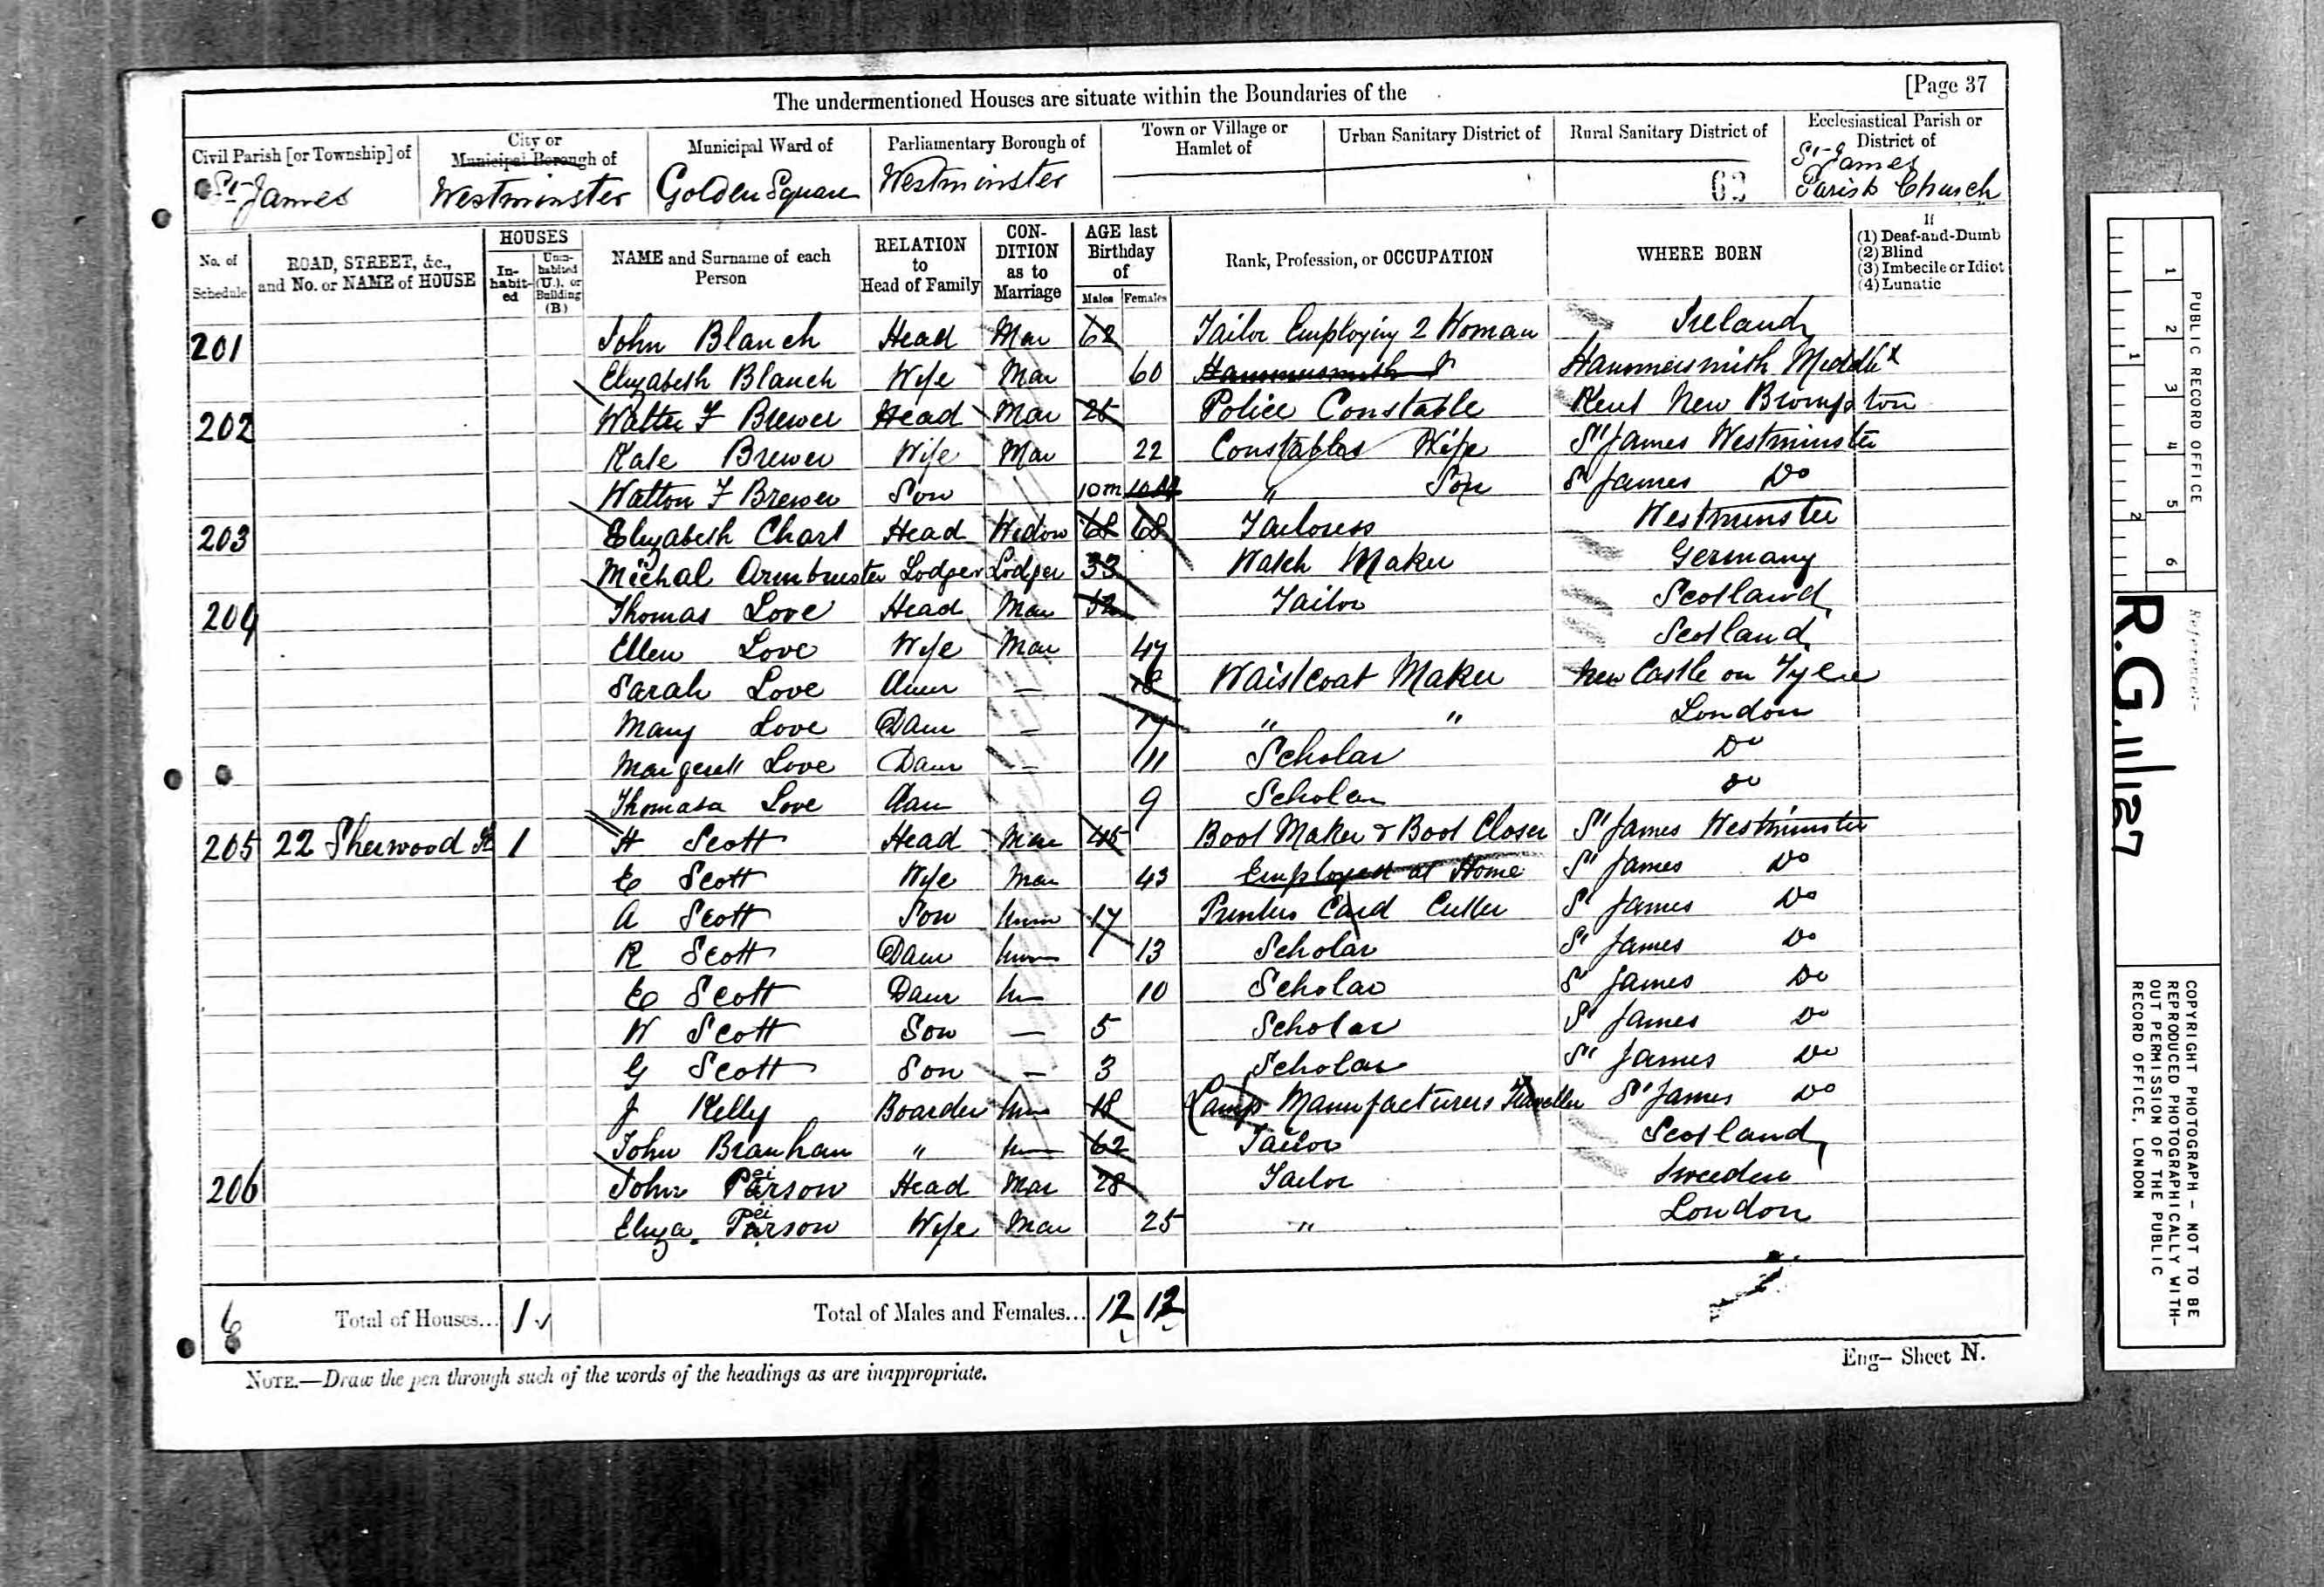 The undermentioned Houses are situate within the Boundaries of the [Page 37
Civil Parish [or Township] of City or Municipal Borough of Municipal Ward of Parliamentary Borough of Town or Village or Hamlet of Urban Sanitary District of Rural Sanitary District of Ecclesiastical Parish or District of
St James Westminster Golden Square Westminster St James Parish Church
No. of Schedule ROAD, STREET, &c., and No. or NAME of HOUSE HOUSES In-habit-ed Unin-habited (U.), or Building (B) NAME and Surname of each Person RELATION to Head of Family CON-DITION as to Marriage AGE last Birthday of Males Females Rank, Profession, or OCCUPATION WHERE BORN If (1) Deaf-and-Dumb (2) Blind (3) Imbecile or Idiot (4) Lunatic
201 John Blanch Head Mar 62 Tailor Employing 2 Woman Ireland
Elizabeth Blanch Wife Mar 60 Hammersmith Hammersmith Middlx
202 Walter F Brewer Head Mar Police Constable Kent New Brompton
Kate Brewer Wife Mar 22 Constables Wife St James Westminster
Walton F Brewer Son 10m " Son St James Do
203 Elizabeth Chart Head Widow 68 68 Tailoress Westminster
Michal Armbruster Lodger Lodger 33 Watch Maker Germany
204 Thomas Love Head Mar 52 Tailor Scotland
Ellen Love Wife Mar 47 Scotland
Sarah Love Daur — 18 Waistcoat Maker New Castle on Tyne
Mary Love Daur — 14 " " London
Margerett Love Daur — 11 Scholar Do
Thomasa Love Dau 9 Scholar Do
205 22 Sherwood St 1 H Scott Head Mar 45 Boot Maker & Boot Closer St James Westminster
E Scott Wife Mar 43 Employed at Home St James Do
A Scott Son Unm 17 Printers Card Cutter St James Do
R Scott Daur Unm 13 Scholar St James Do
E Scott Daur Un 10 Scholar St James Do
W Scott Son — 5 Scholar St James Do
G Scott Son — 3 Scholar St James Do
J Kelly Boarder Unm 18 Lamp Manufacturers Traveller St James Do
John Branham " Un 62 Tailor Scotland
206 John Peirson Head Mar 28 Tailor Sweeden
Eliza Peirson Wife Mar 25 " London
6 Total of Houses... 1 Total of Males and Females... 12 12
NOTE.—Draw the pen through such of the words of the headings as are inappropriate.
Eng— Sheet N.
1 2 3 4 5 6
1 2
PUBLIC RECORD OFFICE
Reference:-
R.G. 11/127
COPYRIGHT PHOTOGRAPH - NOT TO BE
REPRODUCED PHOTOGRAPHICALLY WITH-
OUT PERMISSION OF THE PUBLIC
RECORD OFFICE, LONDON